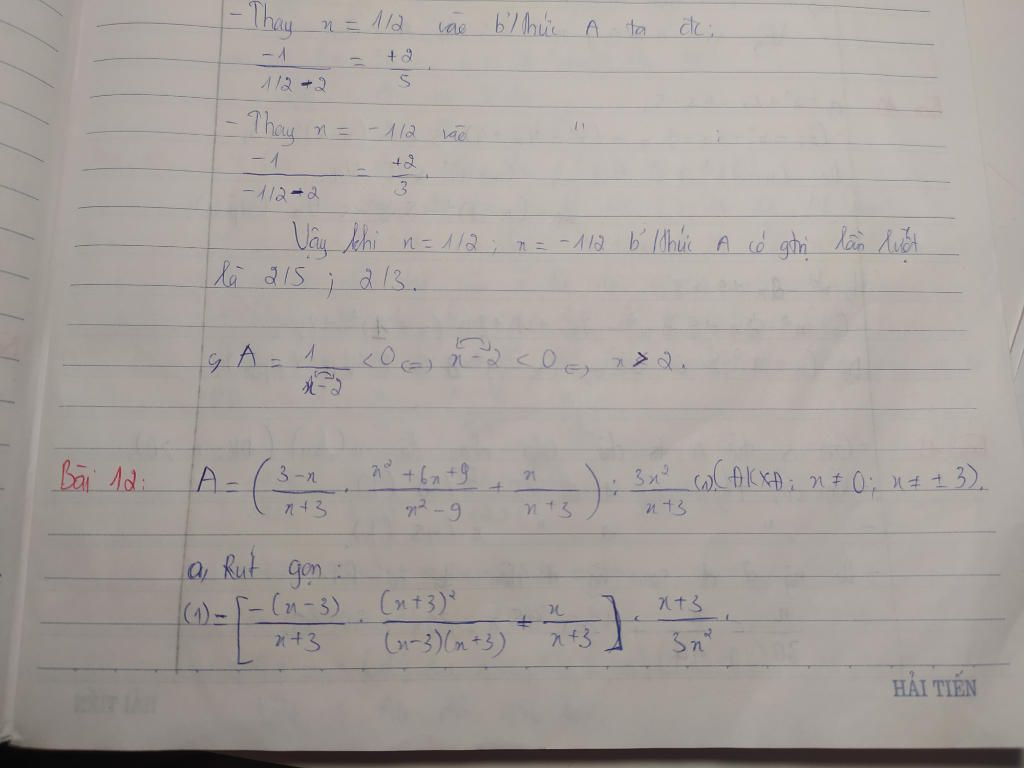 - Thay x = 1/2 vào b'/thức A ta đc:
-1 / (1/2 - 2) = +2/5.
- Thay x = -1/2 vào " ;
-1 / (-1/2 - 2) = +2/3.
Vậy khi x = 1/2 ; x = -1/2 b'/thức A có gtrị lần lượt
là 2/5 ; 2/3.
c, A = 1/(x-2) < 0 <=> x - 2 < 0 <=> x > 2.
Bài 12: A = ( (3-x)/(x+3) . (x² + 6x + 9)/(x² - 9) + x/(x+3) ) : 3x²/(x+3) (1) (ĐKXĐ: x ≠ 0; x ≠ ± 3).
a, Rút gọn:
(1) = [ -(x-3)/(x+3) . (x+3)²/((x-3)(x+3)) + x/(x+3) ] . (x+3)/3x² .
HẢI TIẾN